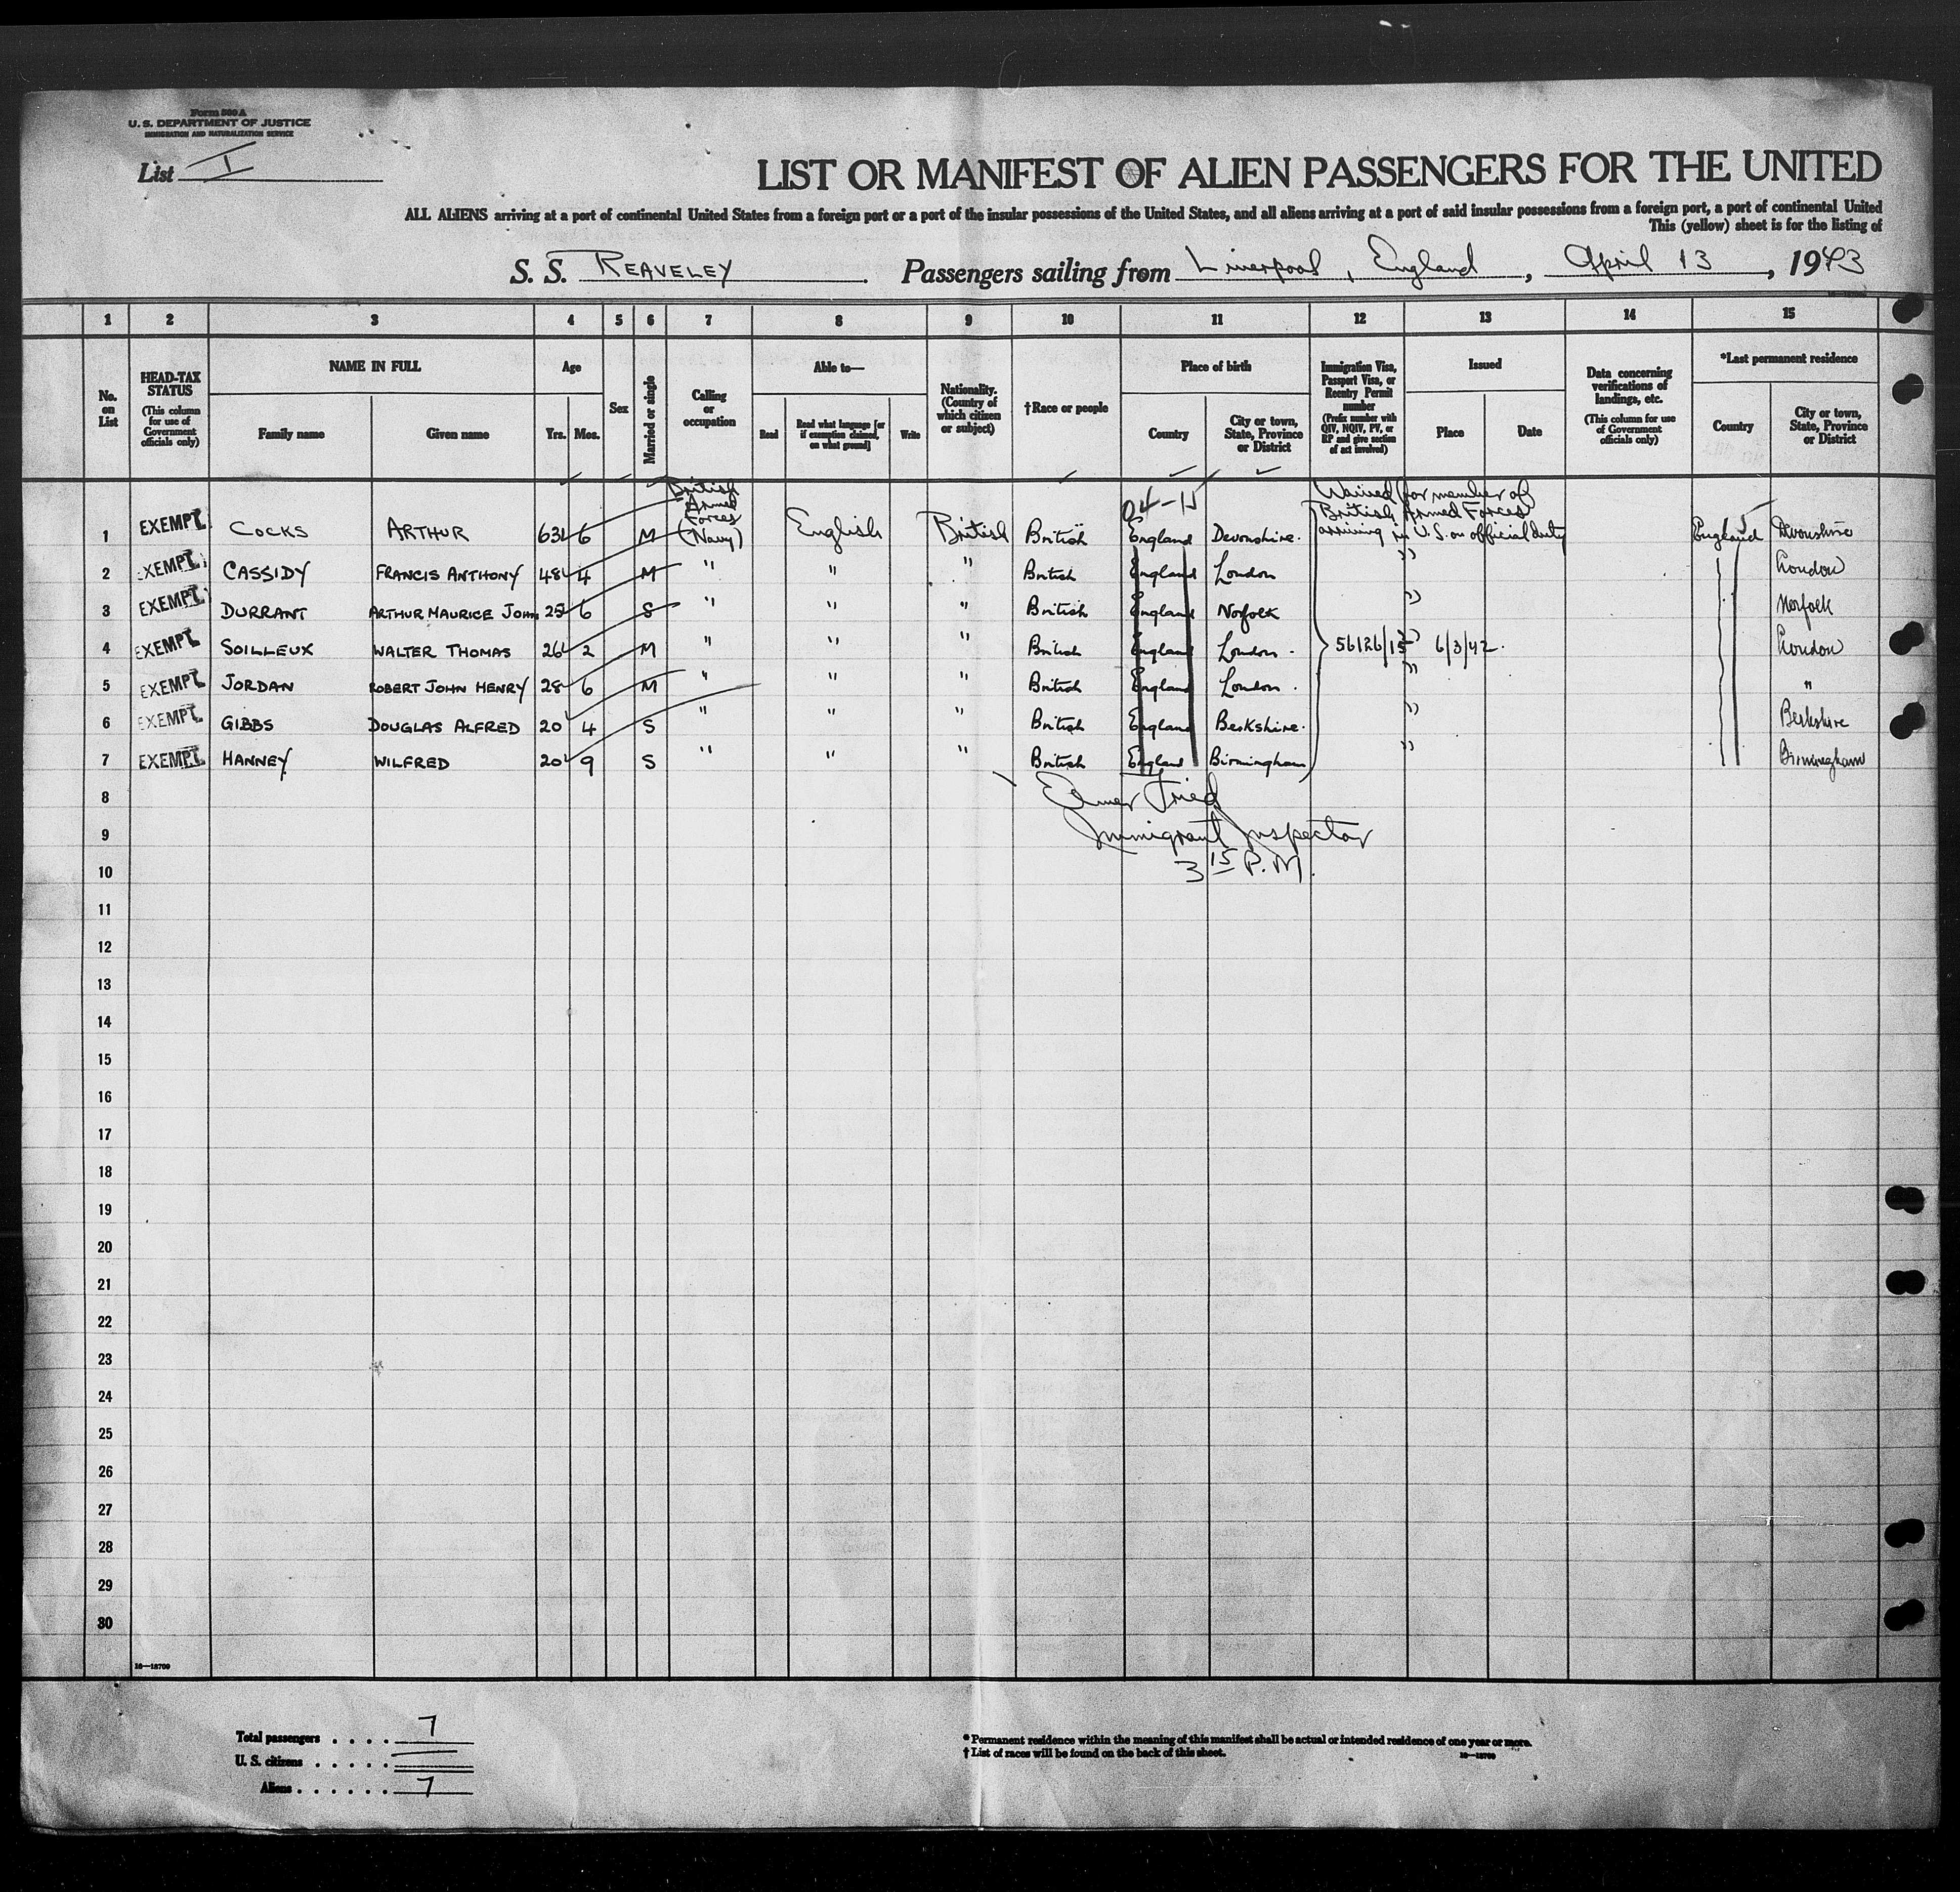 Form 500 A
U. S. DEPARTMENT OF JUSTICE
IMMIGRATION AND NATURALIZATION SERVICE
List I
LIST OR MANIFEST OF ALIEN PASSENGERS FOR THE UNITED
ALL ALIENS arriving at a port of continental United States from a foreign port or a port of the insular possessions of the United States, and all aliens arriving at a port of said insular possessions from a foreign port, a port of continental United
This (yellow) sheet is for the listing of
S. S. REAVELEY. Passengers sailing from Liverpool, England, April 13, 1943
1 2 3 4 5 6 7 8 9 10 11 12 13 14 15
No. on List
HEAD-TAX STATUS (This column for use of Government officials only)
NAME IN FULL
Family name Given name
Age
Yrs. Mos.
Sex
Married or single
Calling or occupation
Able to—
Read Read what language [or if exemption claimed, on what ground] Write
Nationality. (Country of which citizen or subject)
†Race or people
Place of birth
Country City or town, State, Province or District
Immigration Visa, Passport Visa, or Reentry Permit number (Prefix number with QIV, NQIV, PV, or RP and give section of act involved)
Issued
Place Date
Data concerning verifications of landings, etc. (This column for use of Government officials only)
*Last permanent residence
Country City or town, State, Province or District
04-11
1 EXEMPT COCKS ARTHUR 63 6 M British Armed Forces (Navy) English British British England Devonshire. Waived for member of British Armed Forces arriving in U.S. on official duty England Devonshire
2 EXEMPT CASSIDY FRANCIS ANTHONY 48 4 M " " " British England London " London
3 EXEMPT DURRANT ARTHUR MAURICE JOHN 25 6 S " " " British England Norfolk " Norfolk
4 EXEMPT SOILLEUX WALTER THOMAS 26 2 M " " " British England London - 56126/15 " 6/3/42. London
5 EXEMPT JORDAN ROBERT JOHN HENRY 28 6 M " " " British England London . " "
6 EXEMPT GIBBS DOUGLAS ALFRED 20 4 S " " " British England Berkshire. " Berkshire
7 EXEMPT HANNEY WILFRED 20 9 S " " " British England Birmingham " Birmingham
8
Elmer Fried
9
Immigrant Inspector
10
3 15 P.M.
11
12
13
14
15
16
17
18
19
20
21
22
23
24
25
26
27
28
29
30
16—18700
Total passengers . . . . 7
U. S. citizens . . . . .
Aliens . . . . . . 7
* Permanent residence within the meaning of this manifest shall be actual or intended residence of one year or more.
† List of races will be found on the back of this sheet.
16—18700